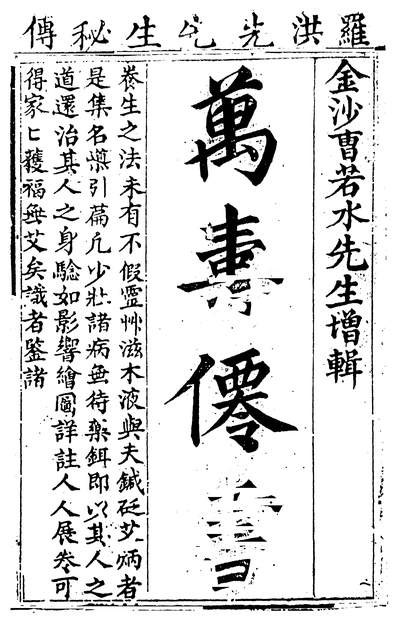 羅洪先先生秘傳
金沙曹若水先生增輯
萬壽僊書
養生之法未有不假靈艸滋木液與夫鍼砭艾焫者
是集名藥引萹凡少壯諸病無待藥餌即以其人之
道還治其人之身驗如影響繪圖詳註人人展叅可
得家匕獲福無艾矣識者鑒諸